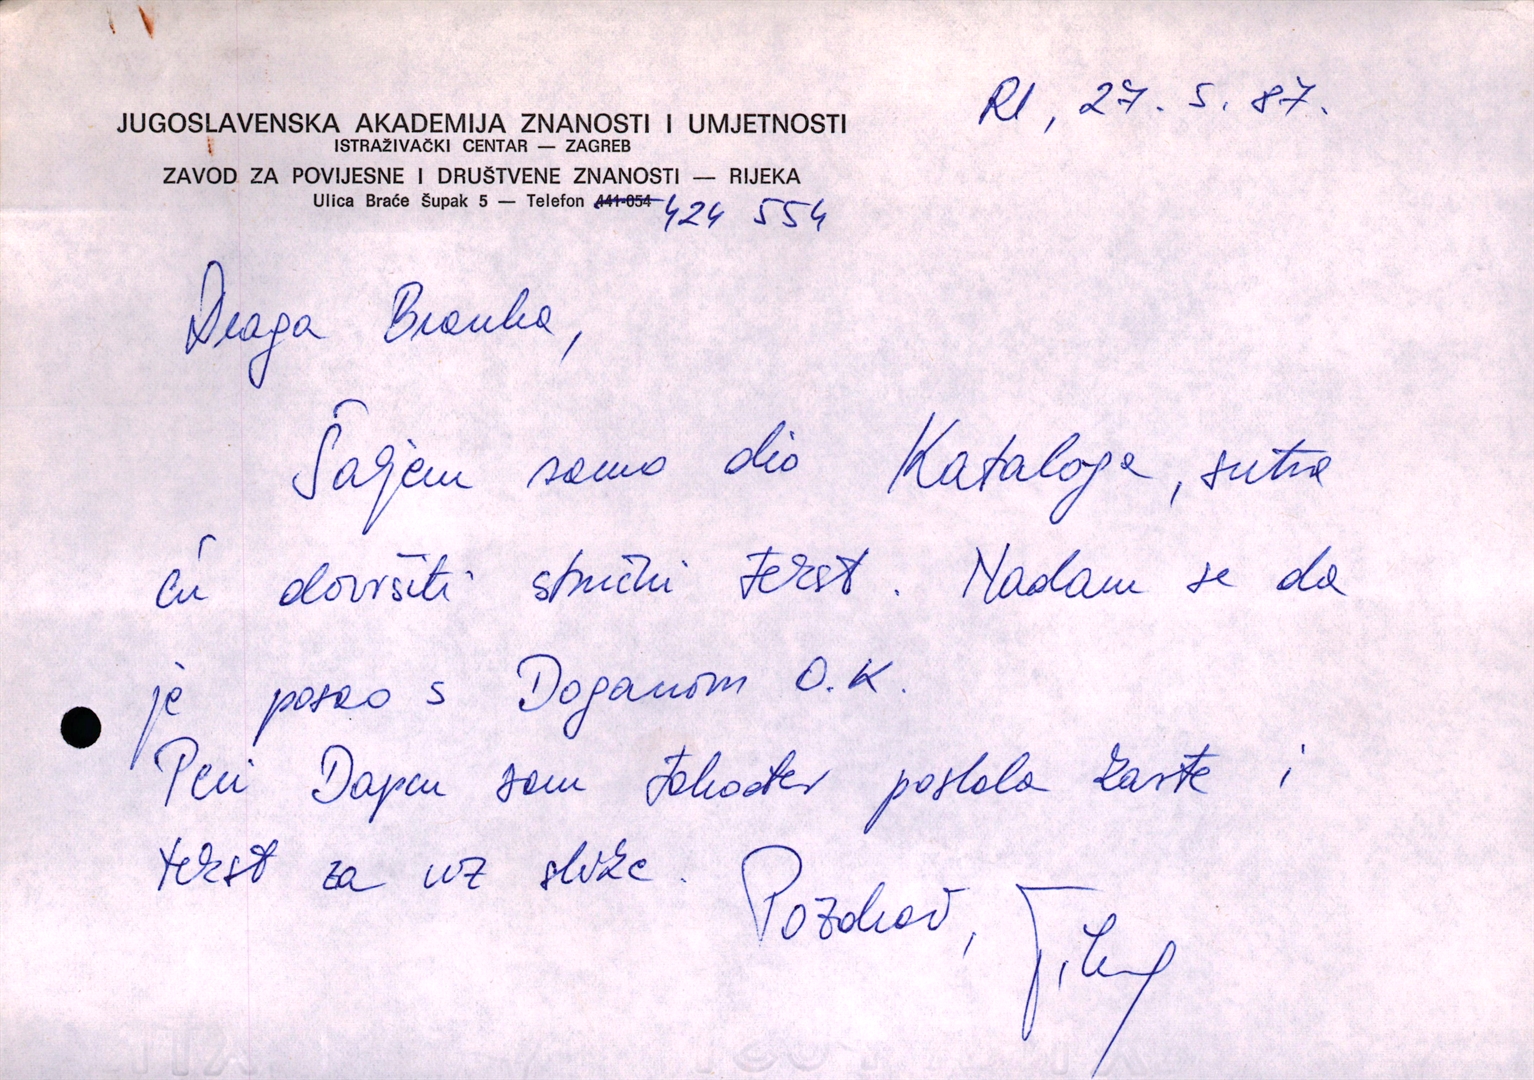 RI, 27. 5. 87.
JUGOSLAVENSKA AKADEMIJA ZNANOSTI I UMJETNOSTI
ISTRAŽIVAČKI CENTAR — ZAGREB
ZAVOD ZA POVIJESNE I DRUŠTVENE ZNANOSTI — RIJEKA
Ulica Braće Šupak 5 — Telefon 441-054 424 554
Draga Branka,
Šaljem samo dio Kataloga, sutra
ću dovršiti stručni tekst. Nadam se da
je posao s Doganom O.K.
Peri Dapcu sam također poslala karte i
tekst za uz slike.
Pozdrav,